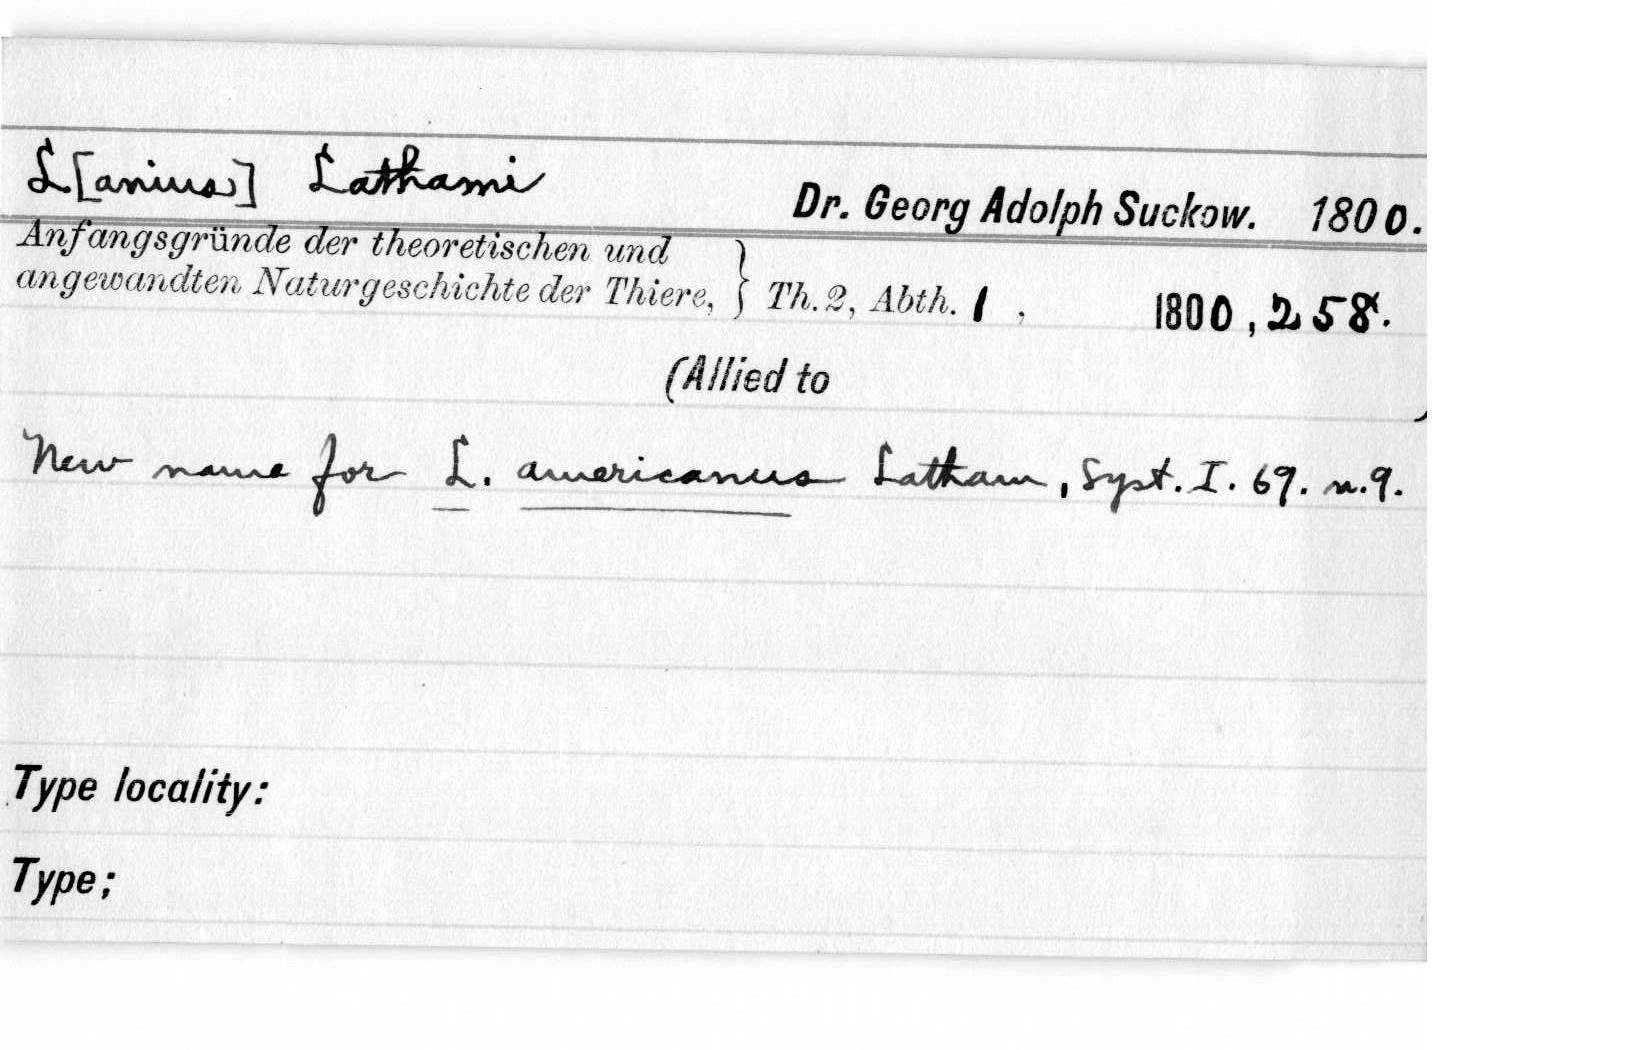 L[anius] Lathami
Dr. Georg Adolph Suckow. 1800.
Anfangsgründe der theoretischen und
angewandten Naturgeschichte der Thiere, } Th. 2, Abth. 1 , 1800, 258.
(Allied to )
New name for L. americanus Latham, Syst. I. 69. n.9.
Type locality:
Type;